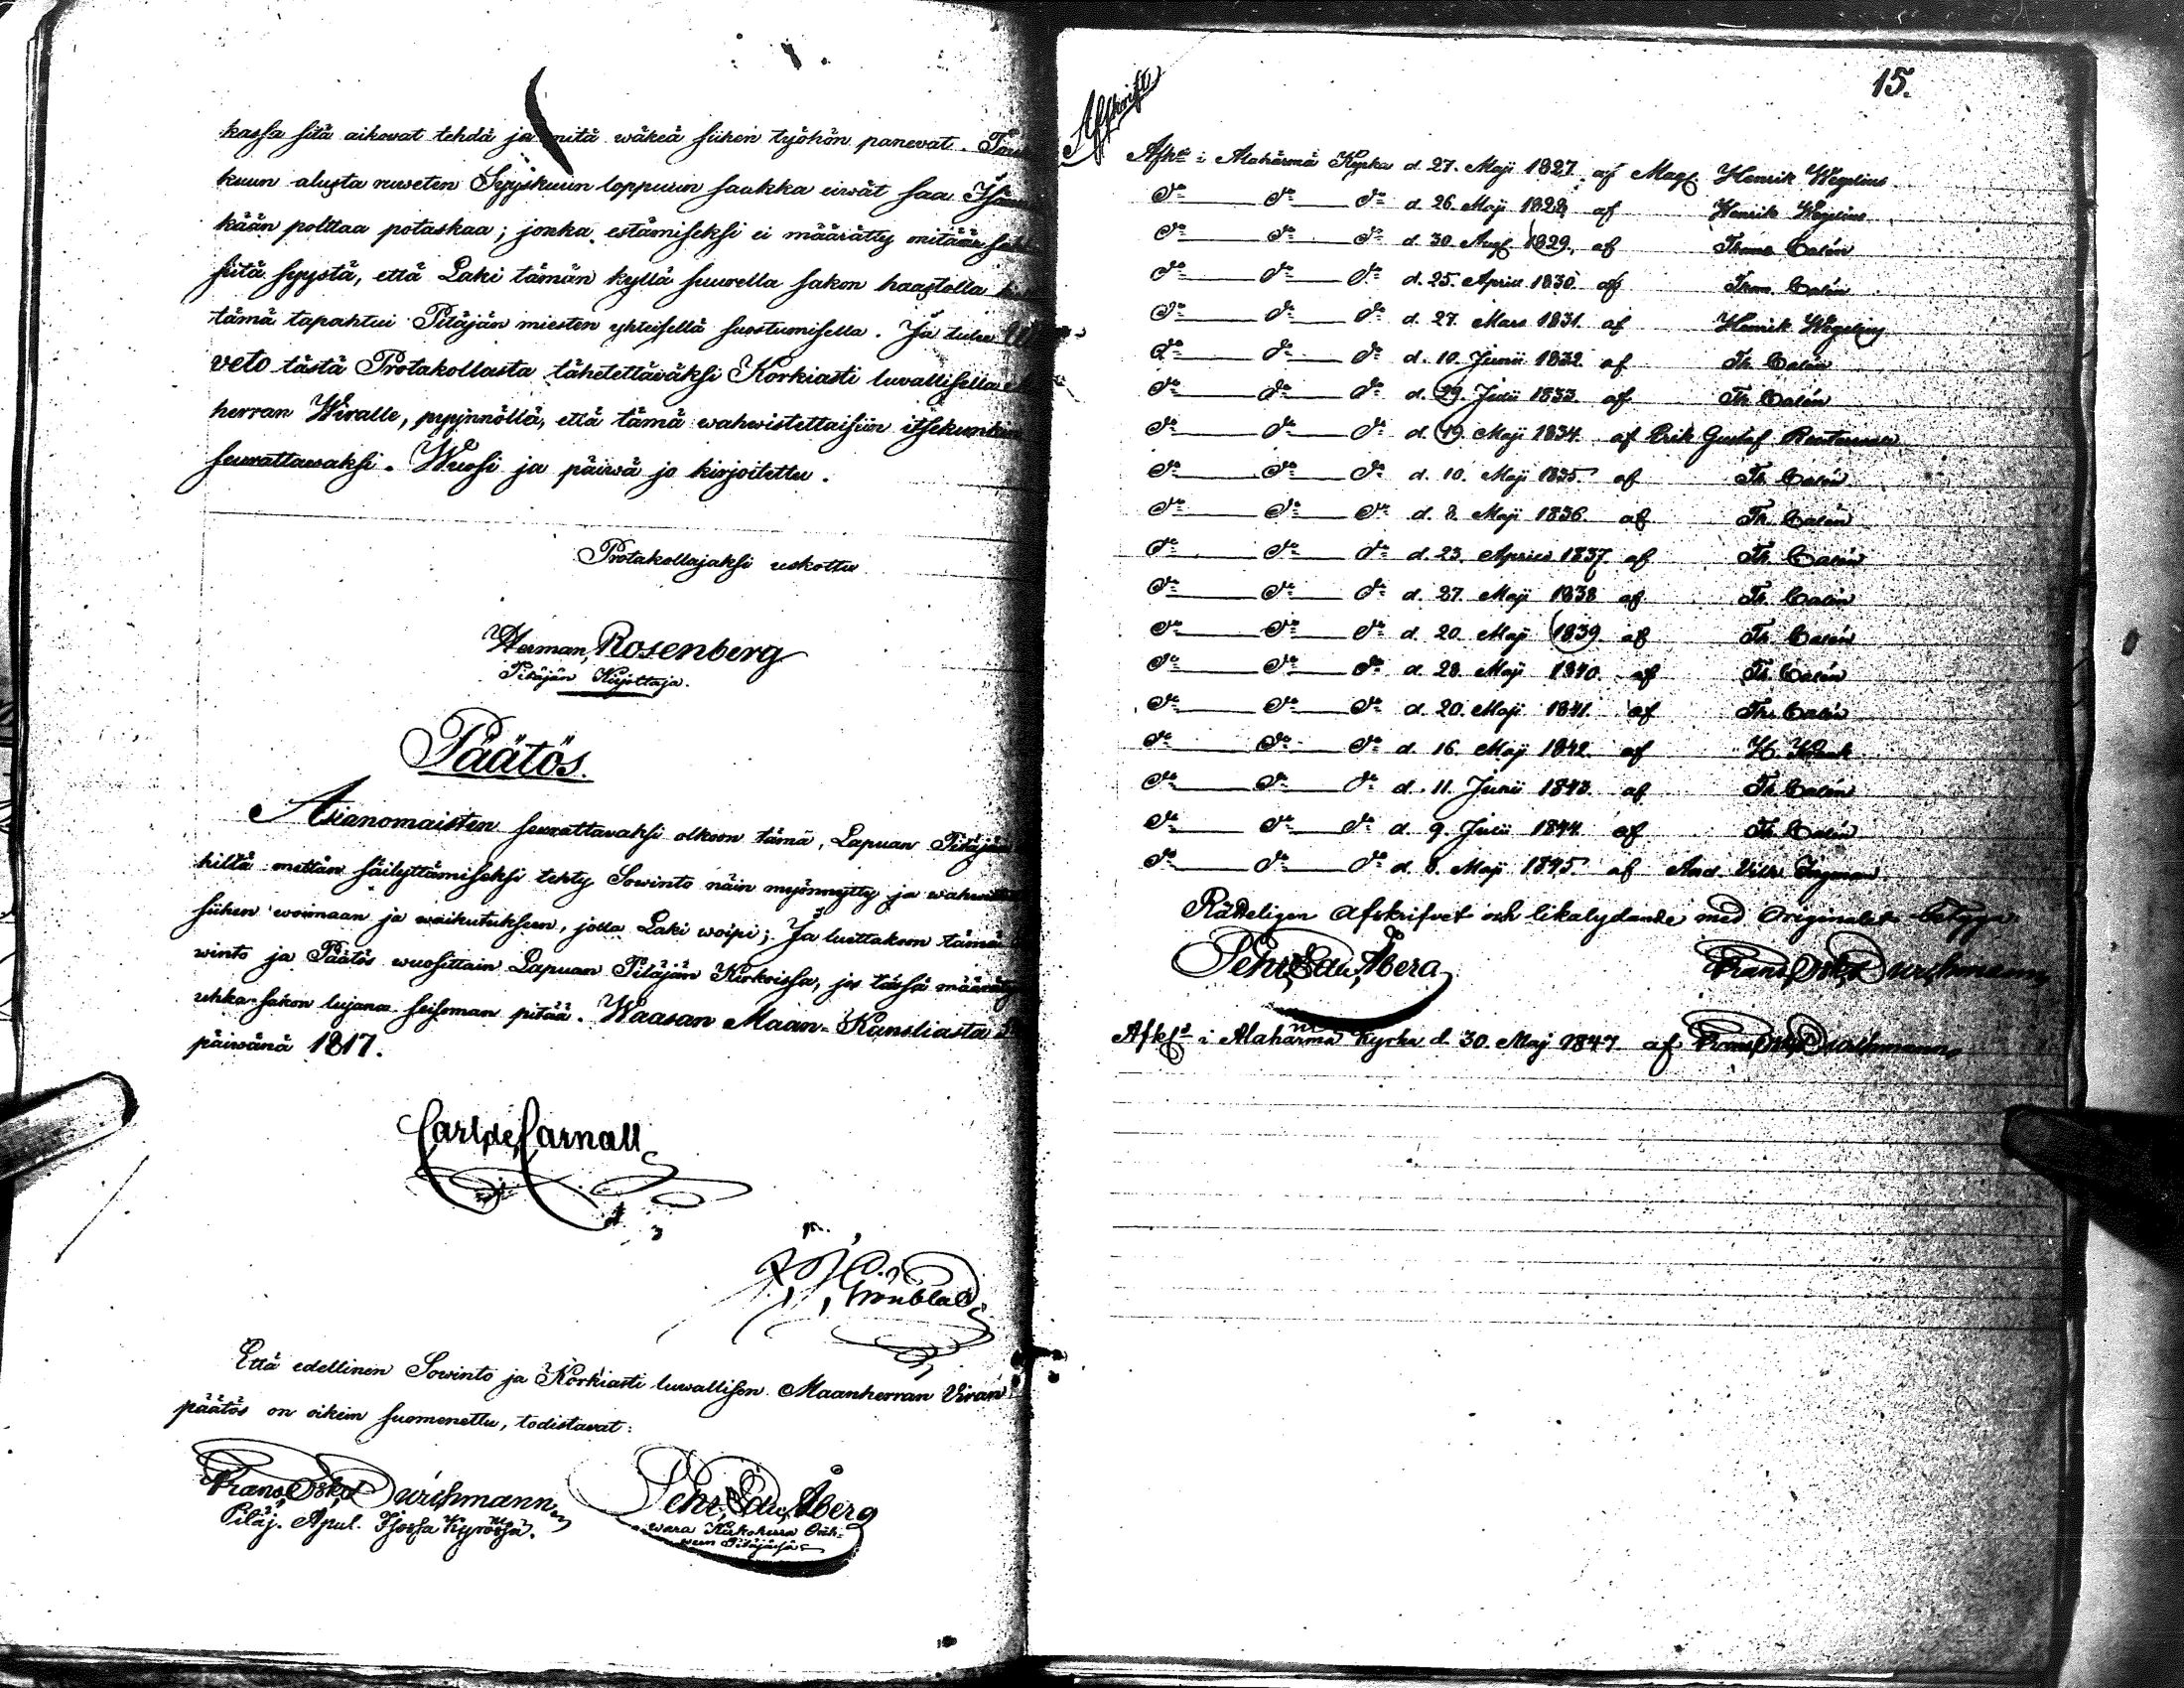 kassa sitä aikovat tehdä ja mitä wäkeä siihen työhön panevat.
kuun alusta ruweten Syyskuun loppuun saakka eiwät saa
kään polttaa potaskaa; jonka estämiseksi ei määrätty mitään
siitä syystä, että Laki tämän kyllä suurella sakon haastolla
tämä tapahtui Pitäjän miesten yhteisellä suostumisella. Ja tulee
veto tästä Protakollasta lähetettäwäksi Korkiasti luvallisella
herran Wiralle, pyynnöllä, että tämä wahwistettaisiin itsekunkin
seurattawaksi. Wuosi ja päiwä jo kirjoitettu.
Protakollajaksi uskottu
Herman Rosenberg
Pitäjän Kirjottaja.
Päätös.
Asianomaisten seurattavaksi olkoon tämä, Lapuan Pitäjän
hiltä mettän säilyttämiseksi tehty Sowinto näin myönnytty ja
siihen woimaan ja waikutukseen, jolla Laki woipi; Ja luettakoon tämä
winto ja Päätös wuosittain Lapuan Pitäjän Kirkoissa, jos tässä
uhka-sakon lujana seisoman pitää. Waasan Maan-Kansliasta
päiwänä 1817.
Carl de Carnall
Grönblad
Että edellinen Sowinto ja Korkiasti luwallisen Maanherran Viran
päätös on oikein suomenettu, todistavat:
Frans Osk. Durchmann
Pitäj. Apul. Isossa Kyrössä.
Pehr Edv. Åberg
wara Kirkoherra
Pitäjässä
Afskrift
15.
Afkt i Alahärmä Kyrka d. 27. Maji 1827. af Mag. Henrik Wegelius
Do Do Do d. 26. Maji 1828, af Henrik Wegelius
Do Do Do d. 30. Aug. 1829, af Thomas Calén
Do Do Do d. 25. April 1830. af Thom. Calén
Do Do Do d. 27. Mars 1831. af Henrik Wegelius
Do Do Do d. 10. Junii 1832. af Th. Calén
Do Do Do d. 29. Julii 1833. af Th. Calén
Do Do Do d. 19. Maji 1834. af Erik Gustaf
Do Do Do d. 10. Maji 1835. af Th. Calén
Do Do Do d. 8. Maji 1836. af Th. Calén
Do Do Do d. 23. Aprils 1837. af Th. Calén
Do Do Do d. 27. Maji 1838 af Th. Calén
Do Do Do d. 20. Maji 1839. af Th. Calén
Do Do Do d. 28. Maji 1840. af Th. Calén
Do Do Do d. 20. Maji 1841. af Th. Calén
Do Do Do d. 16. Maji 1842. af H.
Do Do Do d. 11. Junii 1843. af Th. Calén
Do Do Do d. 9. Julii 1844. af Th. Calén
Do Do Do d. 8. Maji 1845. af And. Vilh. Ingman
Rätteligen afskrifvet och likalydande med Originalet betyga
Pehr Edv. Åberg Frans Osk. Durchmann
Afkt i Alahärmä Kyrka d. 30. Maj 1847 af Frans Osk. Durchmann